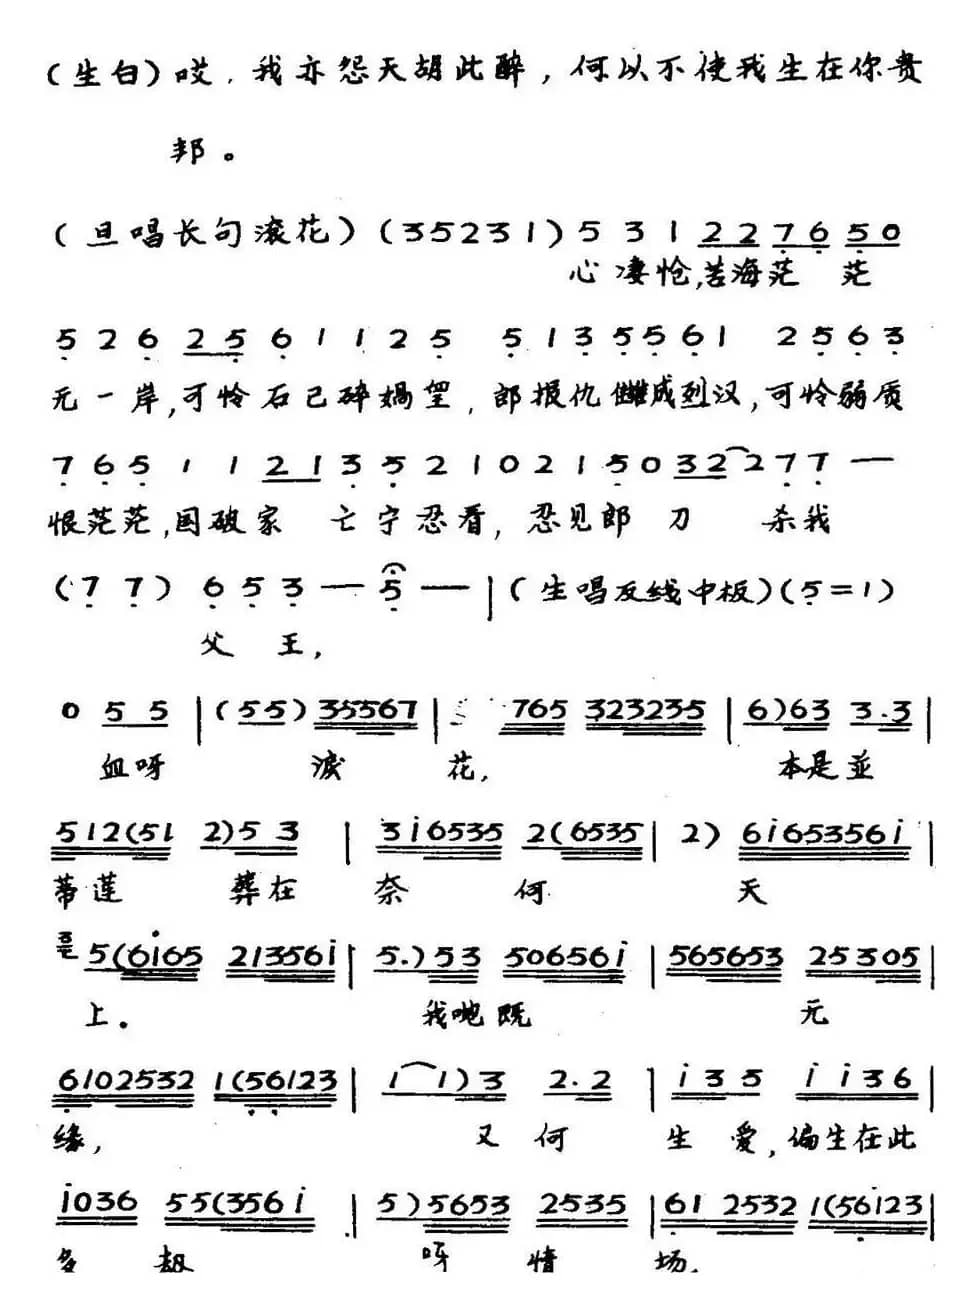 (生白)哎．我亦怨天胡此醉，何以不使我生在你贵
邦。
(旦唱长句滚花)(35231) 5 3 1 2 2 7 6 5 0
心凄怆,苦海茫 茫
5 2 6 2 5 6 1 1 2 5 5 1 3 5 5 6 1 2 5 6 3
无一岸,可怜石已碎娲皇，郎报仇雠成烈汉,可怜弱质
7 6 5 1 1 2 1 3 5 2 1 0 2 1 5 0 3 2 2 7 7 —
恨茫茫,国破家 亡宁忍看, 忍见郎 刀 杀我
(7 7) 6 5 3 — 5 — | (生唱反线中板)(5=1)
父 王,
0 5 5 | (5 5) 35567 | 765 323235 | 6)63 3.3 |
血呀 泪 花, 本是並
512(51 2)5 3 | 3i6535 2(6535 | 2) 6i65356i |
蒂莲 葬在 奈 何 天
5(6i65 213356i | 5.)53 50656i | 565653 25305 |
上。 我哋既 无
6102532 1(56123 | 1 1)3 2.2 | i35 ii36 |
缘, 又何 生 爱,偏生在此
i036 55(356i | 5)5653 2535 | 61 2532 1(56123 |
多 劫 呀 情 场,